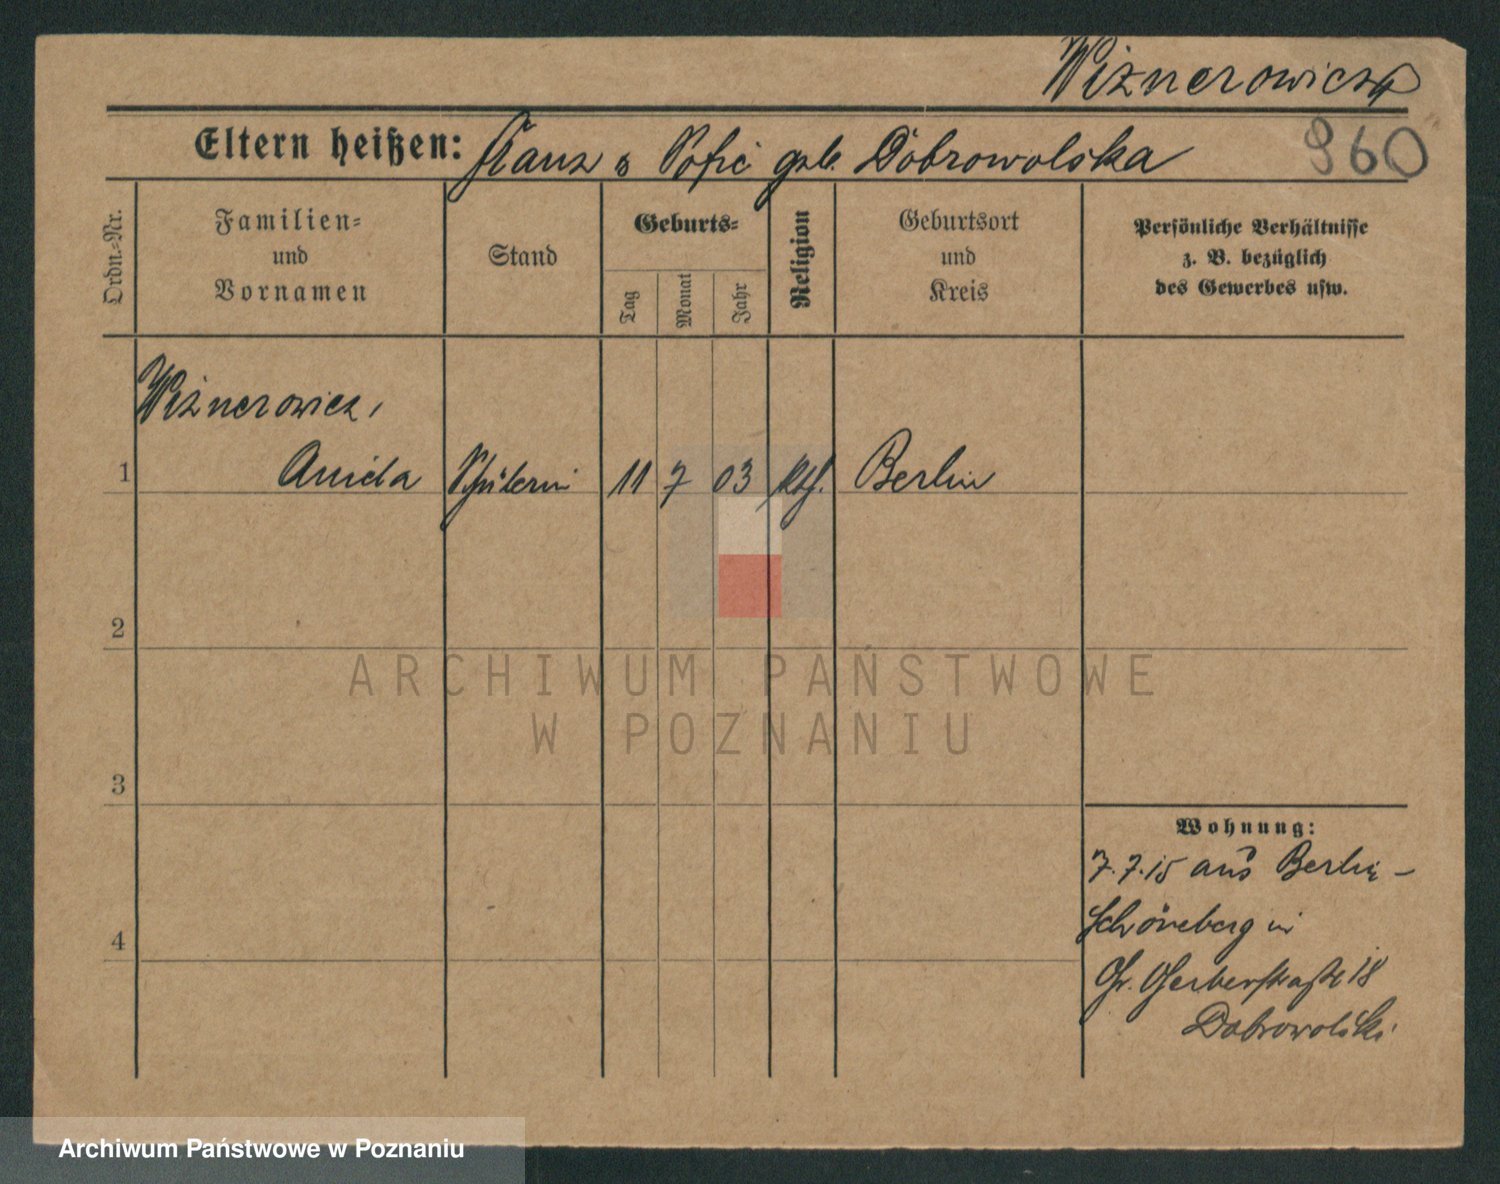 Wiznerowicz
Eltern heißen: Franz & Sofie geb. Dobrowolska 960
Ordn.-Nr.
Familien-
und
Vornamen
Stand
Geburts-
Tag
Monat
Jahr
Religion
Geburtsort
und
Kreis
Persönliche Verhältnisse
z. B. bezüglich
des Gewerbes usw.
Wiznerowicz,
1 Anida Schülerin 11 7 03 kth. Berlin
2
ARCHIWUM PAŃSTWOWE
W POZNANIU
3
Wohnung:
7.7.15 aus Berlin-
Schöneberg in
4
Gr. Gerberstraße 18
Dobrowolski
Archiwum Państwowe w Poznaniu